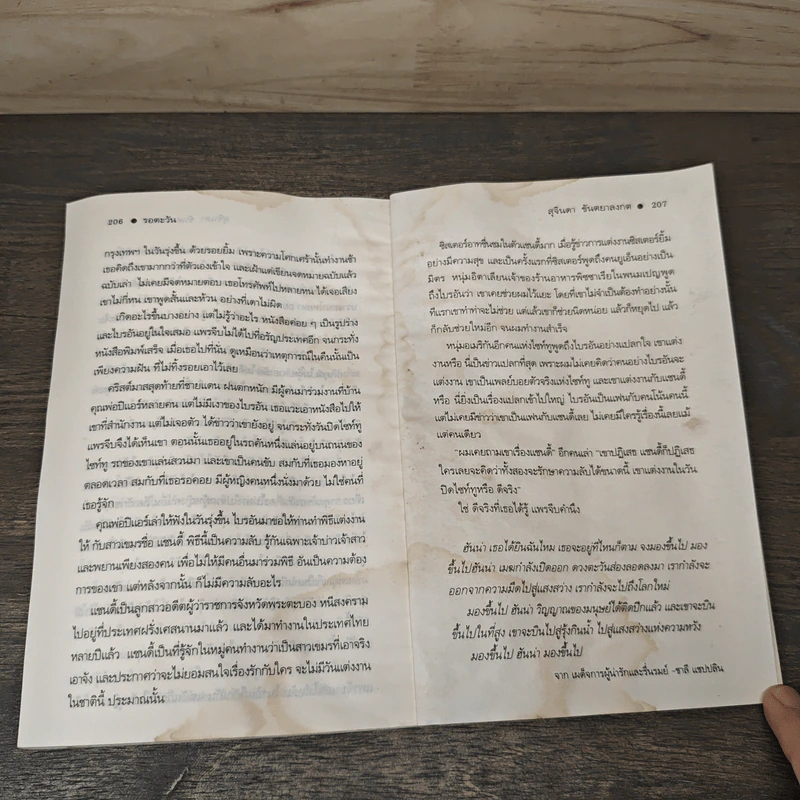 206 ● รอตะวัน
กรุงเทพฯ ในวันรุ่งขึ้น ด้วยรอยยิ้ม เพราะความโศกเศร้านั้นทำงานช้า
เธอคิดถึงเขามากกว่าที่ตัวเองเข้าใจ และเฝ้าแต่เขียนจดหมายฉบับแล้ว
ฉบับเล่า ไม่เคยมีจดหมายตอบ เธอโทรศัพท์ไปหลายหน ได้เจอเสียง
เขาไม่กี่หน เขาพูดสั้นและห้วน อย่างที่เดาไม่ผิด
เกิดอะไรขึ้นบางอย่าง แต่ไม่รู้ว่าอะไร หนังสือค่อย ๆ เป็นรูปร่าง
และไบรอันอยู่ในใจเสมอ แพรจีบไม่ได้ไปที่อรัญประเทศอีก จนกระทั่ง
หนังสือพิมพ์เสร็จ เมื่อเธอไปที่นั่น ดูเหมือนว่าเหตุการณ์ในคืนนั้นเป็น
เพียงความฝัน ที่ไม่ทิ้งรอยเอาไว้เลย
คริสต์มาสสุดท้ายที่ชายแดน ฝนตกหนัก มีผู้คนมาร่วมงานที่บ้าน
คุณพ่อปิแอร์หลายคน แต่ไม่มีเงาของไบรอัน เธอแวะเอาหนังสือไปให้
เขาที่สำนักงาน แต่ไม่เจอตัว ได้ข่าวว่าเขายังอยู่ จนกระทั่งวันปิดไซท์ทู
แพรจีบจึงได้เห็นเขา ตอนนั้นเธออยู่ในรถคันหนึ่งแล่นอยู่บนถนนของ
ไซท์ทู รถของเขาแล่นสวนมา และเขาเป็นคนขับ สมกับที่เธอมองหาอยู่
ตลอดเวลา สมกับที่เธอรอคอย มีผู้หญิงคนหนึ่งนั่งมาด้วย ไม่ใช่คนที่
เธอรู้จัก
คุณพ่อปิแอร์เล่าให้ฟังในวันรุ่งขึ้น ไบรอันมาขอให้ท่านทำพิธีแต่งงาน
ให้ กับสาวเขมรชื่อ แซนดี้ พิธีนี้เป็นความลับ รู้กันเฉพาะเจ้าบ่าวเจ้าสาว
และพยานเพียงสองคน เพื่อไม่ให้มีคนอื่นมาร่วมพิธี อันเป็นความต้อง
การของเขา แต่หลังจากนั้น ก็ไม่มีความลับอะไร
แซนดี้เป็นลูกสาวอดีตผู้ว่าราชการจังหวัดพระตะบอง หนีสงคราม
ไปอยู่ที่ประเทศฝรั่งเศสนานมาแล้ว และได้มาทำงานในประเทศไทย
หลายปีแล้ว แซนดี้เป็นที่รู้จักในหมู่คนทำงานว่าเป็นสาวเขมรที่เอาจริง
เอาจัง และประกาศว่าจะไม่ยอมสนใจเรื่องรักกับใคร จะไม่มีวันแต่งงาน
ในชาตินี้ ประมาณนั้น
สุจินดา ขันตยาลงกต ● 207
ซิสเตอร์อาทชื่นชมในตัวแซนดี้มาก เมื่อรู้ข่าวการแต่งงานซิสเตอร์ยิ้ม
อย่างมีความสุข และเป็นครั้งแรกที่ซิสเตอร์พูดถึงคนยูเอ็นอย่างเป็น
มิตร หนุ่มอิตาเลียนเจ้าของร้านอาหารพิซซาเรียในพนมเปญพูด
ถึงไบรอันว่า เขาเคยช่วยผมไว้เยอะ โดยที่เขาไม่จำเป็นต้องทำอย่างนั้น
ทีแรกเขาทำท่าจะไม่ช่วย แต่แล้วเขาก็ช่วยนิดหน่อย แล้วก็หยุดไป แล้ว
ก็กลับช่วยใหม่อีก จนผมทำงานสำเร็จ
หนุ่มอเมริกันอีกคนแห่งไซท์ทูพูดถึงไบรอันอย่างแปลกใจ เขาแต่ง
งานหรือ นี่เป็นข่าวแปลกที่สุด เพราะผมไม่เคยคิดว่าคนอย่างไบรอันจะ
แต่งงาน เขาเป็นเพลย์บอยตัวจริงแห่งไซท์ทู และเขาแต่งงานกับแซนดี้
หรือ นี่ยิ่งเป็นเรื่องแปลกเข้าไปใหญ่ ไบรอันเป็นแฟนกับคนโน้นคนนี้
แต่ไม่เคยมีข่าวว่าเขาเป็นแฟนกับแซนดี้เลย ไม่เคยมีใครรู้เรื่องนี้เลยแม้
แต่คนเดียว
“ผมเคยถามเขาเรื่องแซนดี้” อีกคนเล่า “เขาปฏิเสธ แซนดี้ก็ปฏิเสธ
ใครเลยจะคิดว่าทั้งสองจะรักษาความลับได้ขนาดนี้ เขาแต่งงานในวัน
ปิดไซท์ทูหรือ ดีจริง”
ใช่ ดีจริงที่เธอได้รู้ แพรจีบคำนึง
ฮันน่า เธอได้ยินฉันไหม เธอจะอยู่ที่ไหนก็ตาม จงมองขึ้นไป มอง
ขึ้นไปฮันน่า เมฆกำลังเปิดออก ดวงตะวันส่องลอดลงมา เรากำลังจะ
ออกจากความมืดไปสู่แสงสว่าง เรากำลังจะไปถึงโลกใหม่
มองขึ้นไป ฮันน่า วิญญาณของมนุษย์ได้ติดปีกแล้ว และเขาจะบิน
ขึ้นไปในที่สูง เขาจะบินไปสู่รุ้งกินน้ำ ไปสู่แสงสว่างแห่งความหวัง
มองขึ้นไป ฮันน่า มองขึ้นไป
จาก เผด็จการผู้น่ารักและรื่นรมย์ -ชาลี แชปปลิน